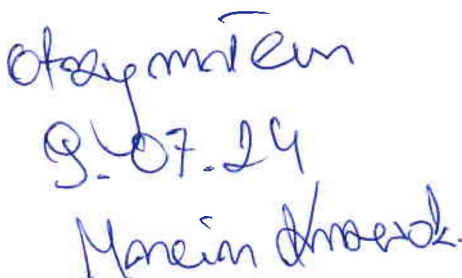 otrzymałem
9.07.24
Marcin